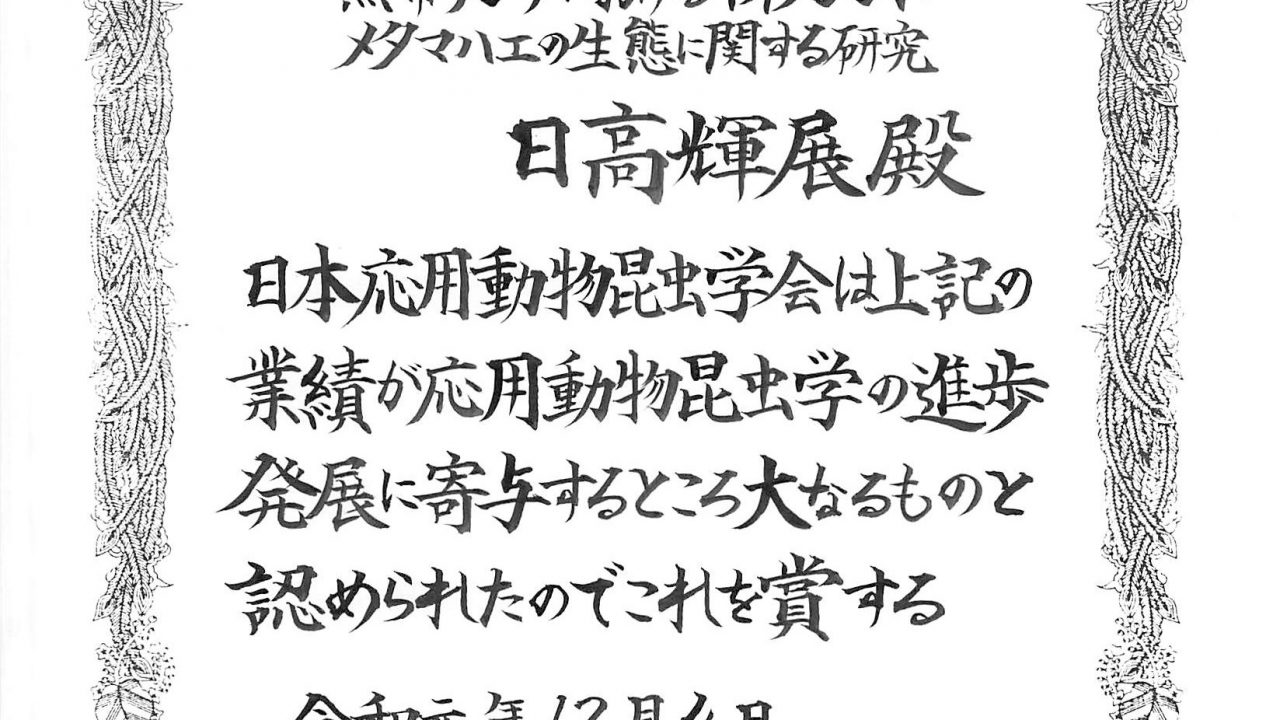 メタマハエの生態に関する研究
日高輝展殿
日本応用動物昆虫学会は上記の
業績が応用動物昆虫学の進歩
発展に寄与するところ大なるものと
認められたのでこれを賞する
令和元年12月4日